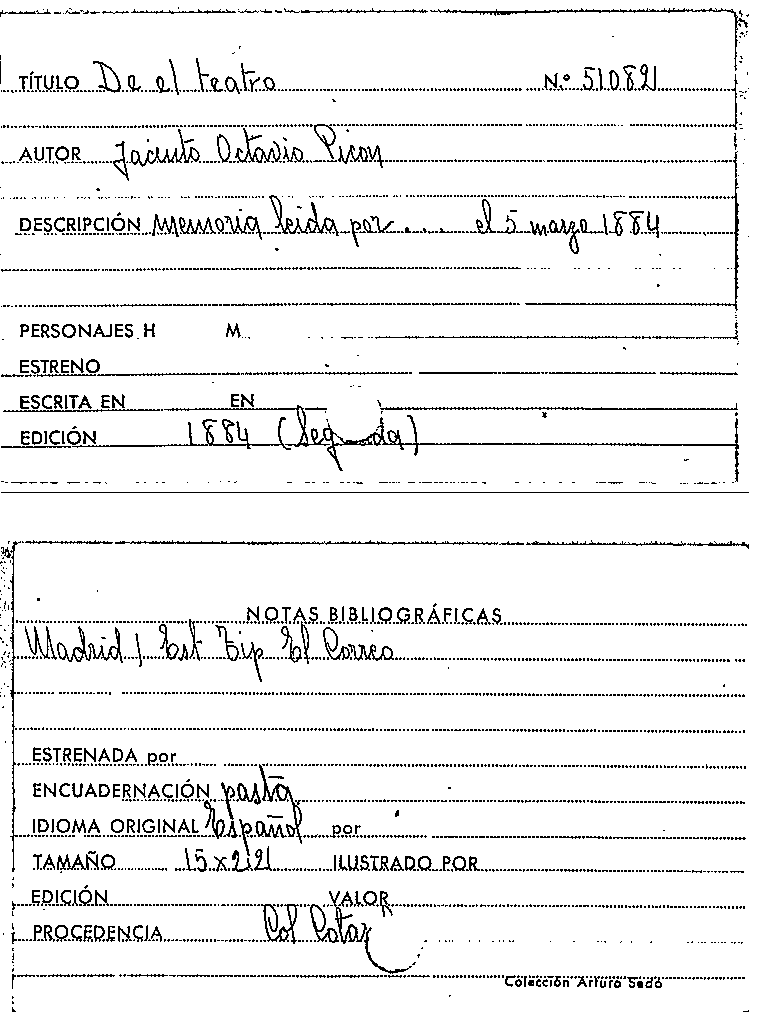 TÍTULO De el teatro N.º 510821
AUTOR Jacinto Octavio Picon
DESCRIPCIÓN Memoria leida por ... el 5 marzo 1884
PERSONAJES H M
ESTRENO
ESCRITA EN EN
EDICIÓN 1884 (Segunda)
NOTAS BIBLIOGRÁFICAS
Madrid / Est Tip El Correo
ESTRENADA por
ENCUADERNACIÓN pasta
IDIOMA ORIGINAL Español por
TAMAÑO 15 x
ILUSTRADO POR
EDICIÓN VALOR
PROCEDENCIA Col
Colección Arturo Sedó